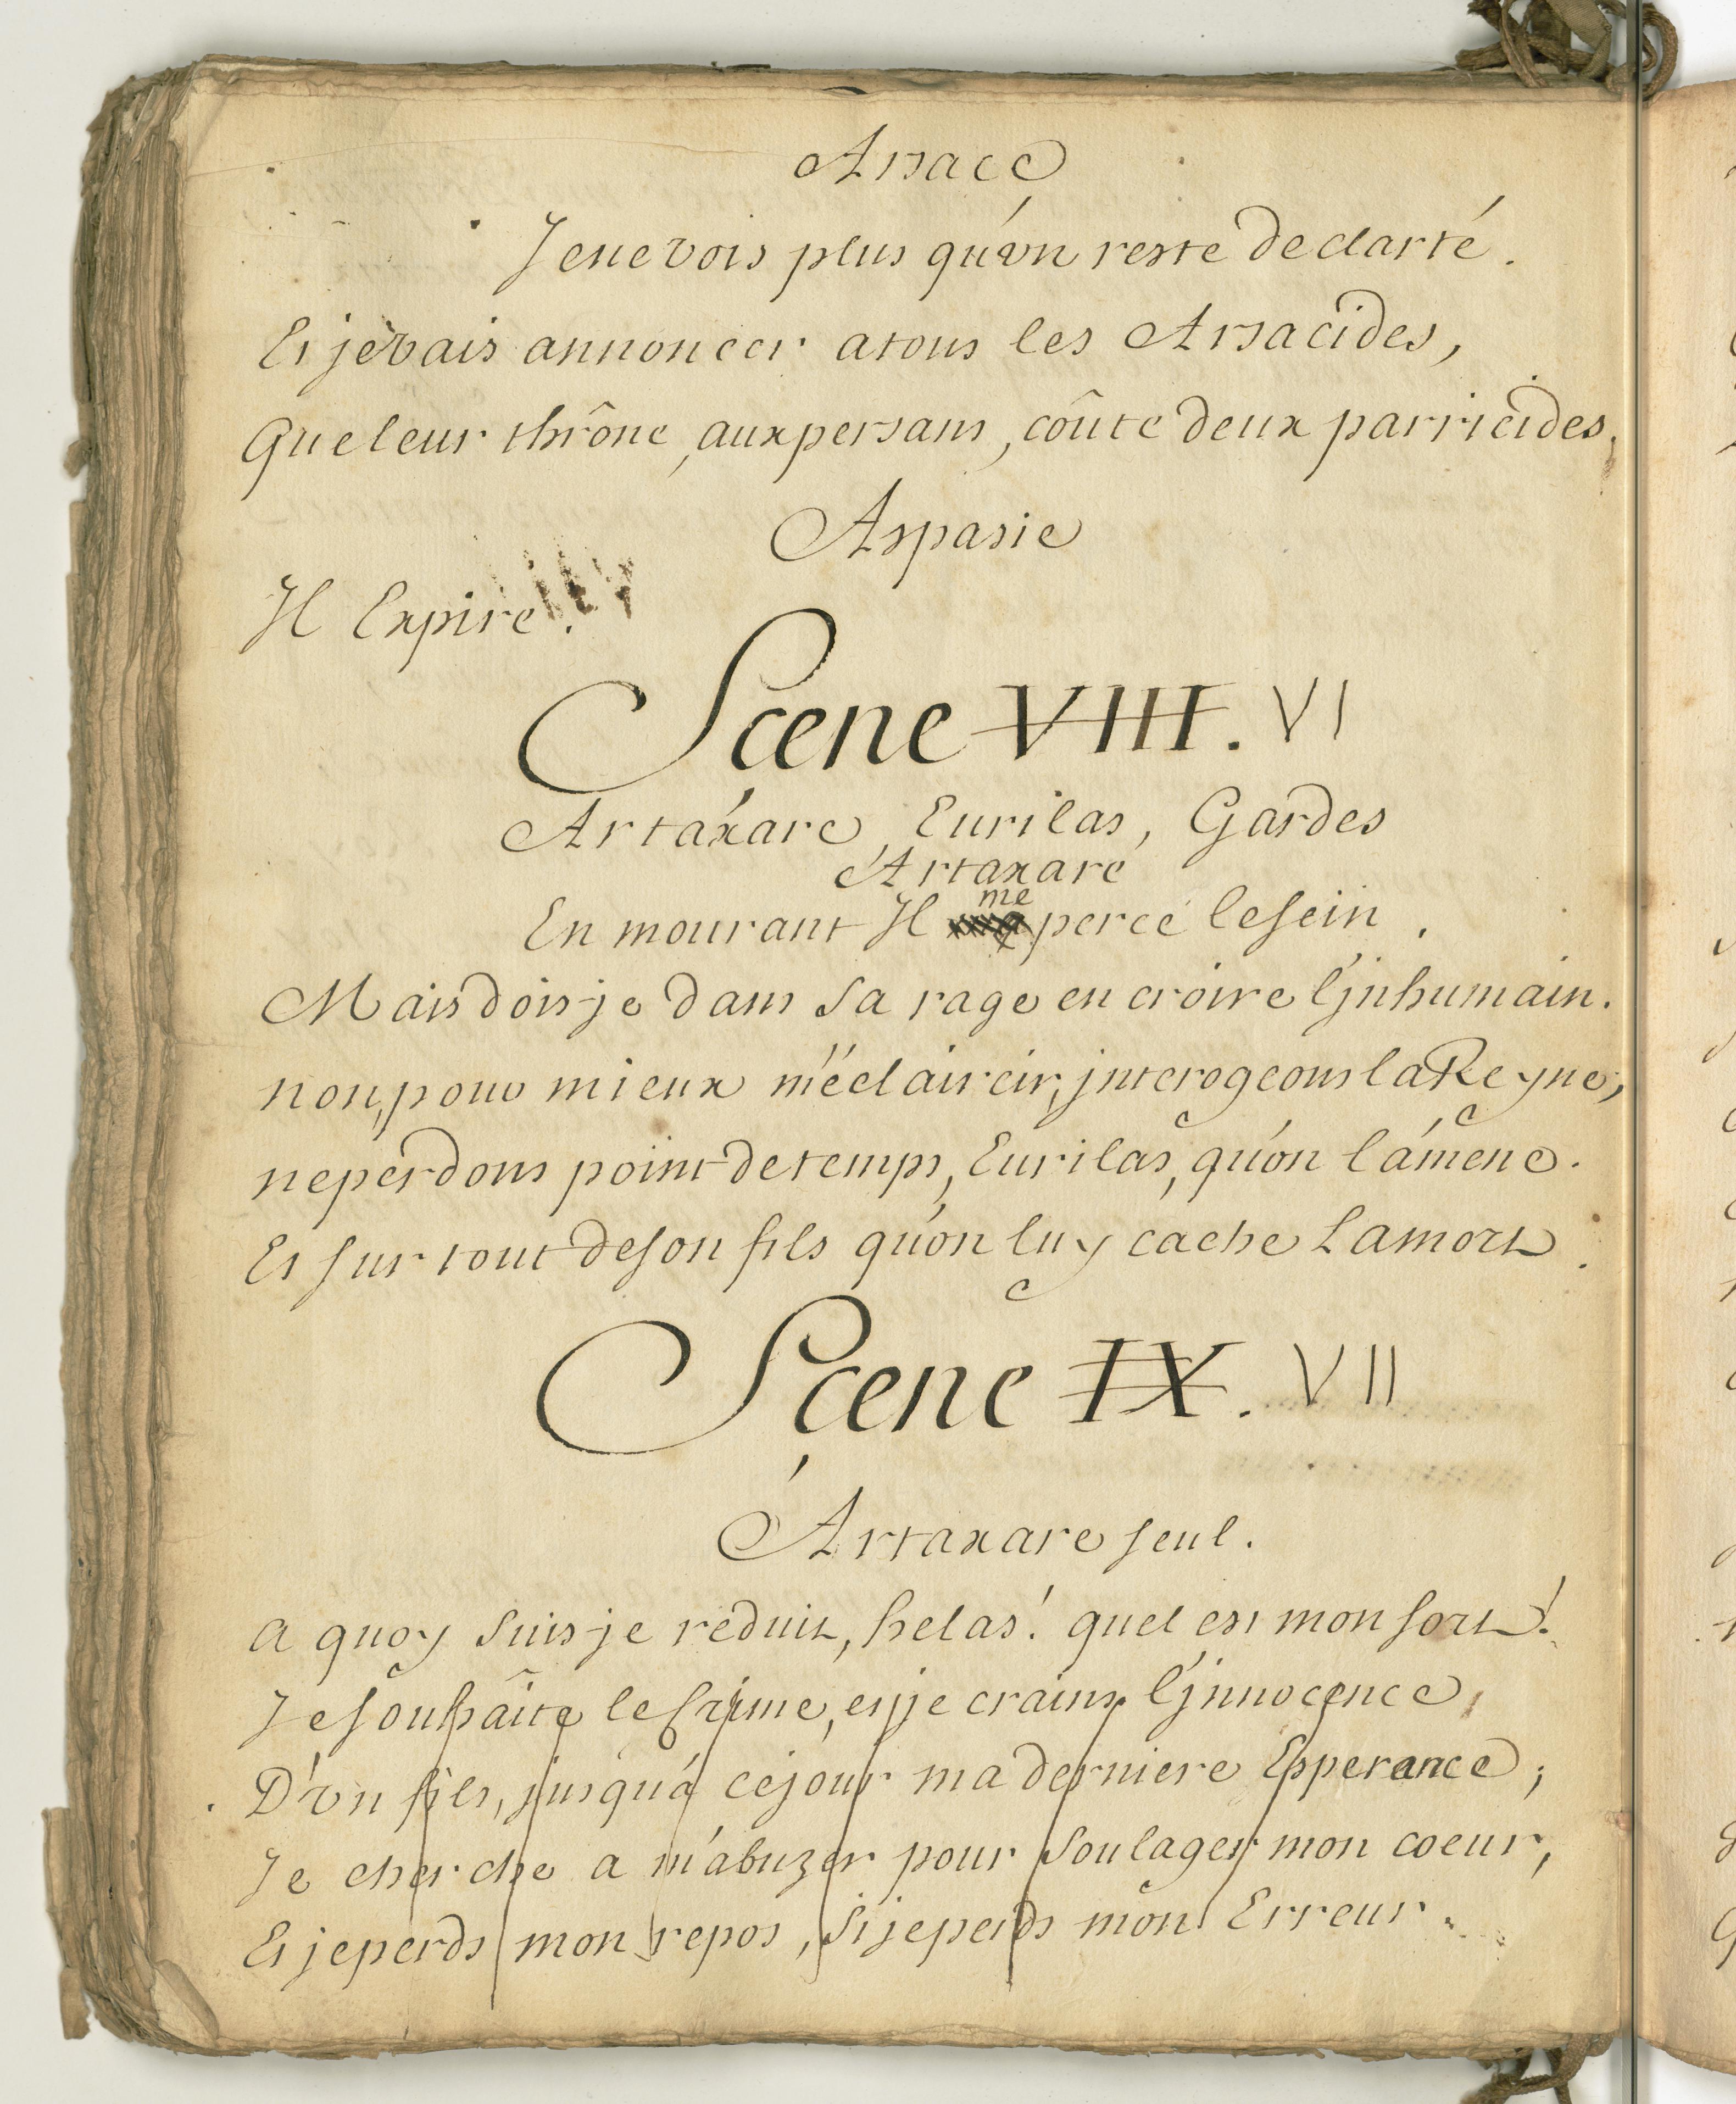 Arsace
Je ne vois plus qu'vn reste de clarté.
Et je vais annoncer a tous les Arsacides,
Que leur thrône, aux persans, coûte deux parricides.
Aspasie
Il Expire.
Scene VIII. VI
Artaxare, Eurilas, Gardes
Artaxare
me
En mourant Il percé le sein.
Mais dois-je dans sa rage en croire l'jnhumain.
non, pour mieux m'éclaircir, jnterogeons la Reyne,
ne perdons point de temps, Eurilas, qu'on l'améne.
Et sur tout de son fils qu'on luy cache La mort.
Scene IX. VII
Artaxare seul.
a quoy suis-je réduit, helas! quel est mon sort!
Je souhaîte le Crime, et je crains l'jnnocence,
D'vn fils, jusqu'á ce jour ma derniere Esperance;
Je cherche a m'abuzer pour soulager mon coeur,
Et je perds mon repos, si je perds mon Erreur.